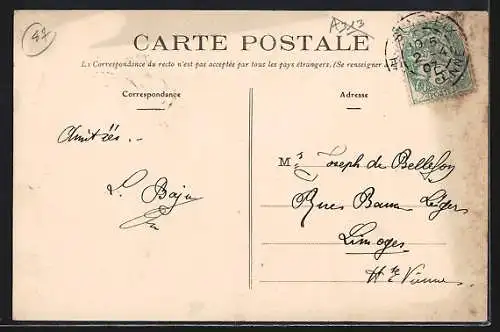 47
A313
CARTE POSTALE
La Correspondance du recto n'est pas acceptée par tous les pays étrangers. (Se renseigner
Correspondance
Adresse
Amitiés.-
L. Baju
Mr Joseph de Bellefon
Rue Léger
Limoges
Hte Vienne